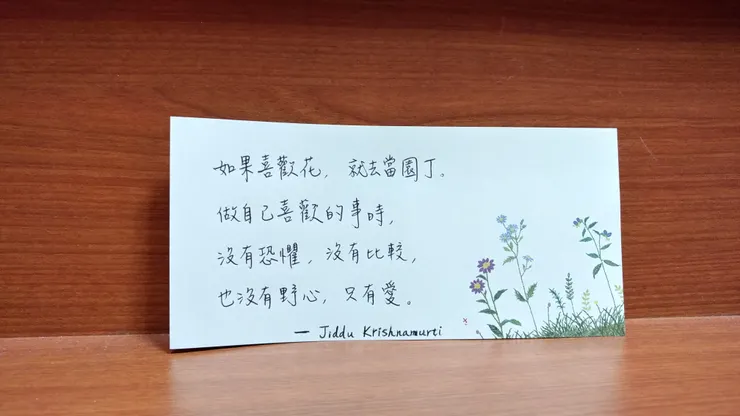 如果喜歡花，就去當園丁。
做自己喜歡的事時，
沒有恐懼，沒有比較，
也沒有野心，只有愛。
— Jiddu Krishnamurti